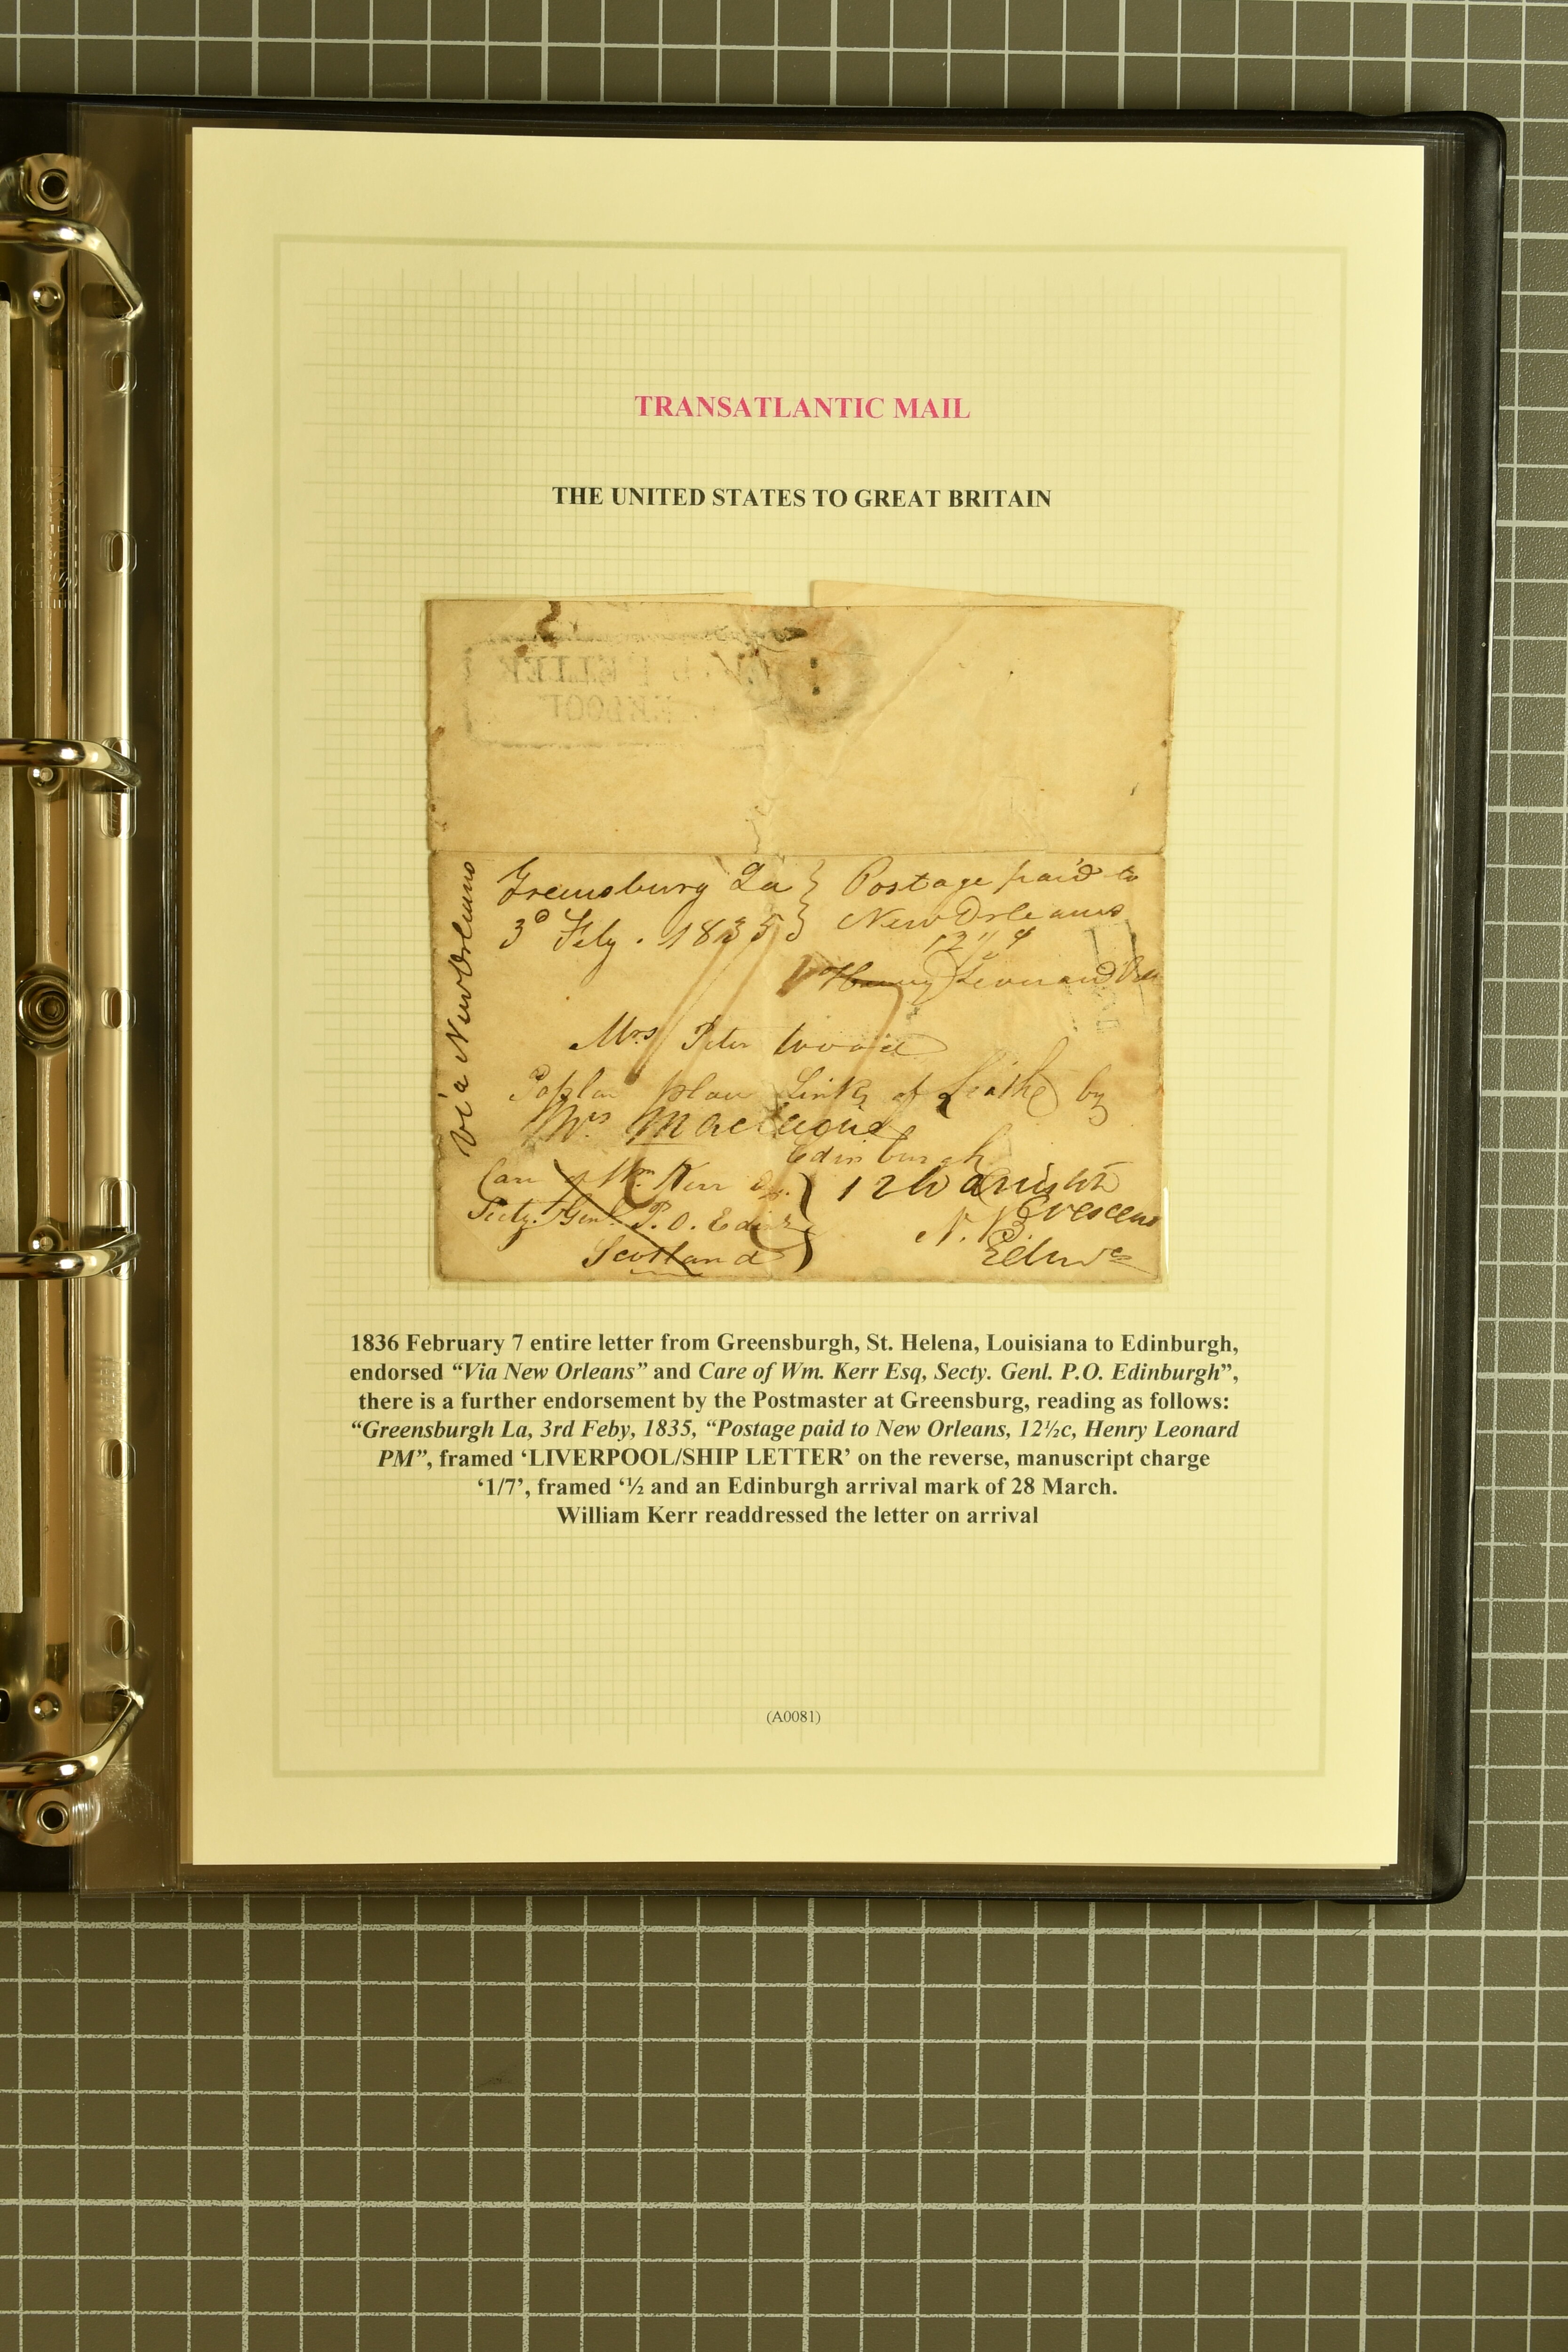 TRANSATLANTIC MAIL
THE UNITED STATES TO GREAT BRITAIN
LETTER
POOL
via New Orleans
Greensburg La } Postage paid to
3d Feby. 1835 } New Orleans
12½
Henry Leonard PM
1/7
Mrs Peter Wood
Poplar place Links of Leith by
Mrs
Edinburgh
Care of Wm. Kerr Esq.
Secty. Genl. P.O. Edinr
Scotland
12 Warriston
Crescent
N.B.
Edinr
1836 February 7 entire letter from Greensburgh, St. Helena, Louisiana to Edinburgh,
endorsed “Via New Orleans” and Care of Wm. Kerr Esq, Secty. Genl. P.O. Edinburgh”,
there is a further endorsement by the Postmaster at Greensburg, reading as follows:
“Greensburgh La, 3rd Feby, 1835, “Postage paid to New Orleans, 12½c, Henry Leonard
PM”, framed ‘LIVERPOOL/SHIP LETTER’ on the reverse, manuscript charge
‘1/7’, framed ‘½ and an Edinburgh arrival mark of 28 March.
William Kerr readdressed the letter on arrival
(A0081)